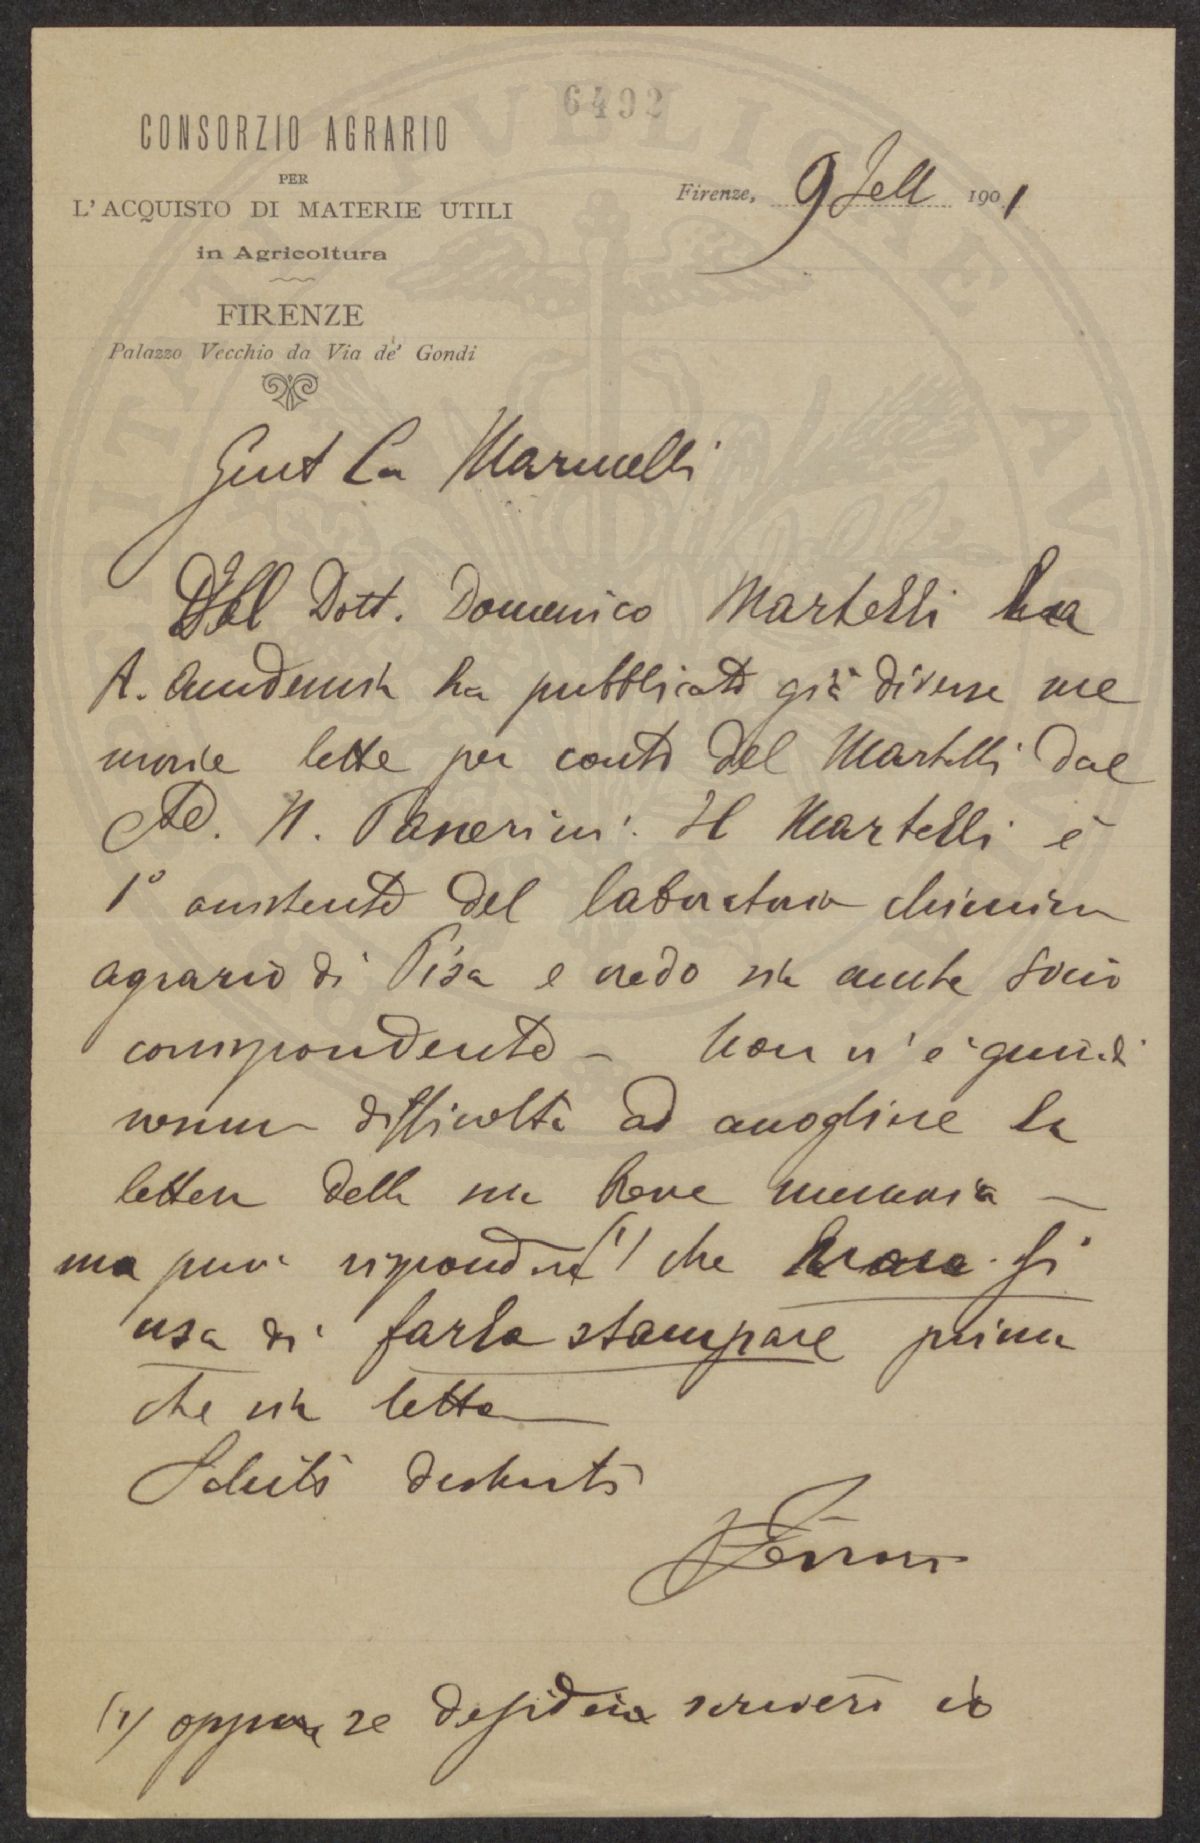 6492
CONSORZIO AGRARIO
PER
L'ACQUISTO DI MATERIE UTILI
in Agricoltura
FIRENZE
Palazzo Vecchio da Via de' Gondi
Firenze, 9 1901
Gent
Del Dott. Domenico Martelli la
R. Accademia ha pubblicato già diverse me
morie lette per conto del Martelli dal
N. Passerini. Il Martelli è
1° assistente del laboratorio chimico
agrario di Pisa e credo sia anche socio
corrispondente – Non vi è quindi
nessuna difficoltà ad accogliere la
lettura della sua breve memoria –
ma puoi rispondere (1) che si
usa di farla stampare prima
che sia letta
Saluti distinti
(1) oppure se desidera scriverò io